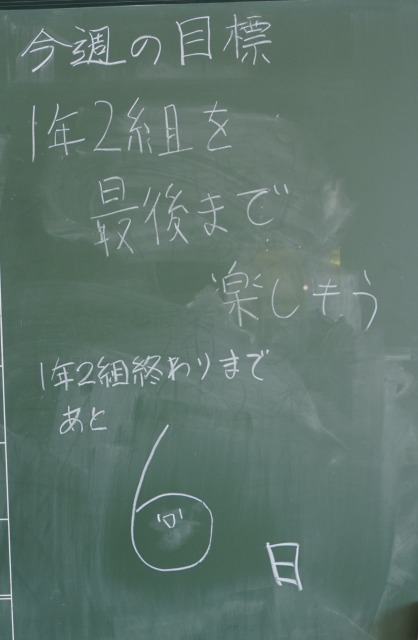 今週の目標
1年2組を
最後まで
楽しもう
1年2組終わりまで
あと
6
日